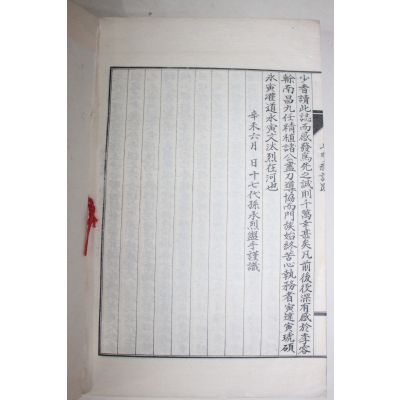 少書讀此誌而感發焉死之誠則千萬幸甚矣凡前後役深有感於李容
餘南昌九任精植諸公盡力導協而門族始終苦心執務者寅達寅琥碩
永寅灌道永寅文汰烈在河也
辛未六月 日十七代孫永烈盥手謹識